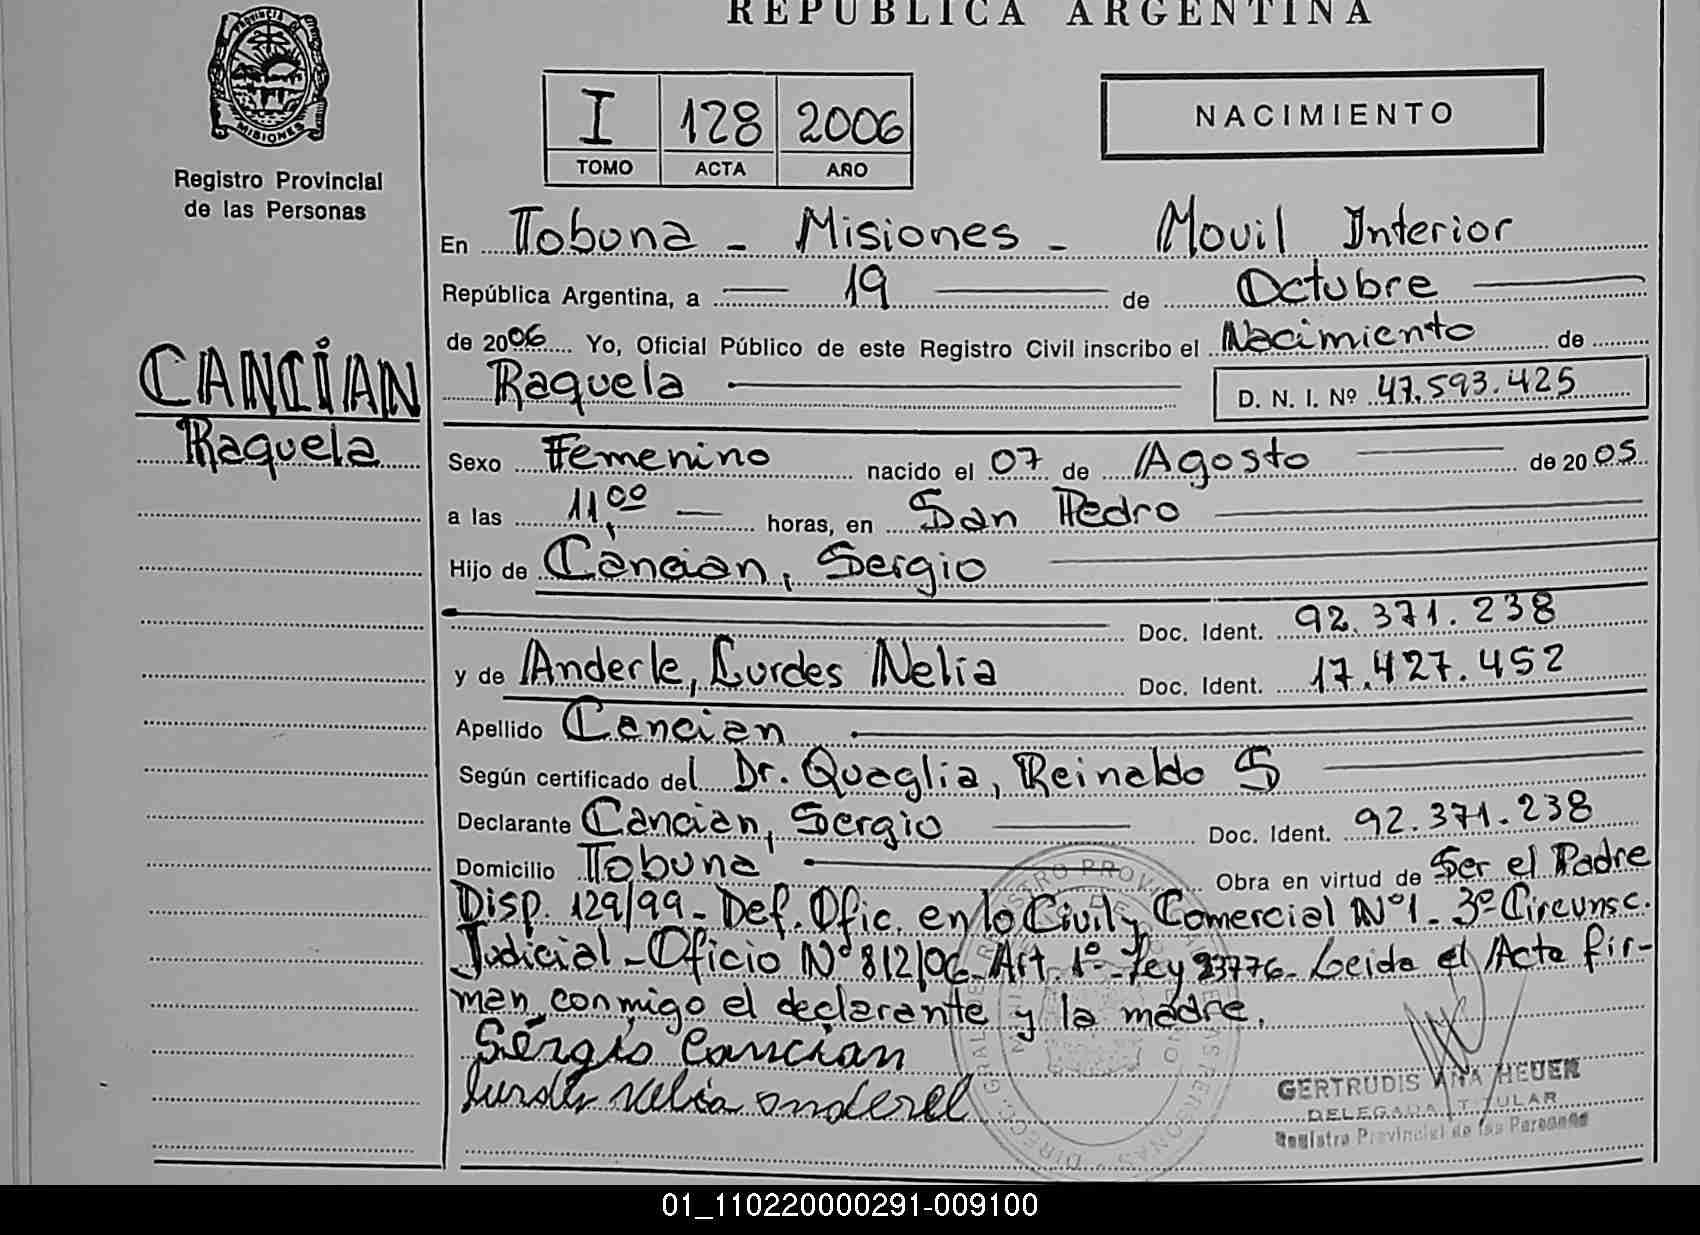 REPUBLICA ARGENTINA
PROVINCIA DE
MISIONES
Registro Provincial
de las Personas
I 128 2006
TOMO ACTA AÑO
NACIMIENTO
En Tobuna - Misiones - Movil Interior
República Argentina, a 19 de Octubre
de 2006 Yo, Oficial Público de este Registro Civil inscribo el Nacimiento de
CANCIAN
Raquela
Raquela D. N. I. Nº 47.593.425
Sexo Femenino nacido el 07 de Agosto de 2005
a las 11,00 horas, en San Pedro
Hijo de Cancian, Sergio
Doc. Ident. 92.371.238
y de Anderle, Lurdes Nelia Doc. Ident. 17.427.452
Apellido Cancian
Según certificado del Dr. Quaglia, Reinaldo S
Declarante Cancian, Sergio Doc. Ident. 92.371.238
Domicilio Tobuna Obra en virtud de Ser el Padre
Disp. 129/99 - Def. Ofic. en lo Civil y Comercial Nº 1 - 3º Circunsc.
Judicial - Oficio Nº 812/06 - Art. 1º - Ley 23776 - Leida el Acta fir-
man conmigo el declarante y la madre.
Sérgio Cancian
lurdes nelia anderel
GERTRUDIS ANA HEUER
DELEGADA TITULAR
Registro Provincial de las Personas
01_110220000291-009100